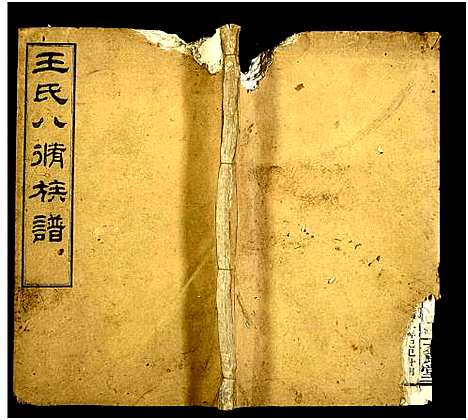 王氏八脩族譜